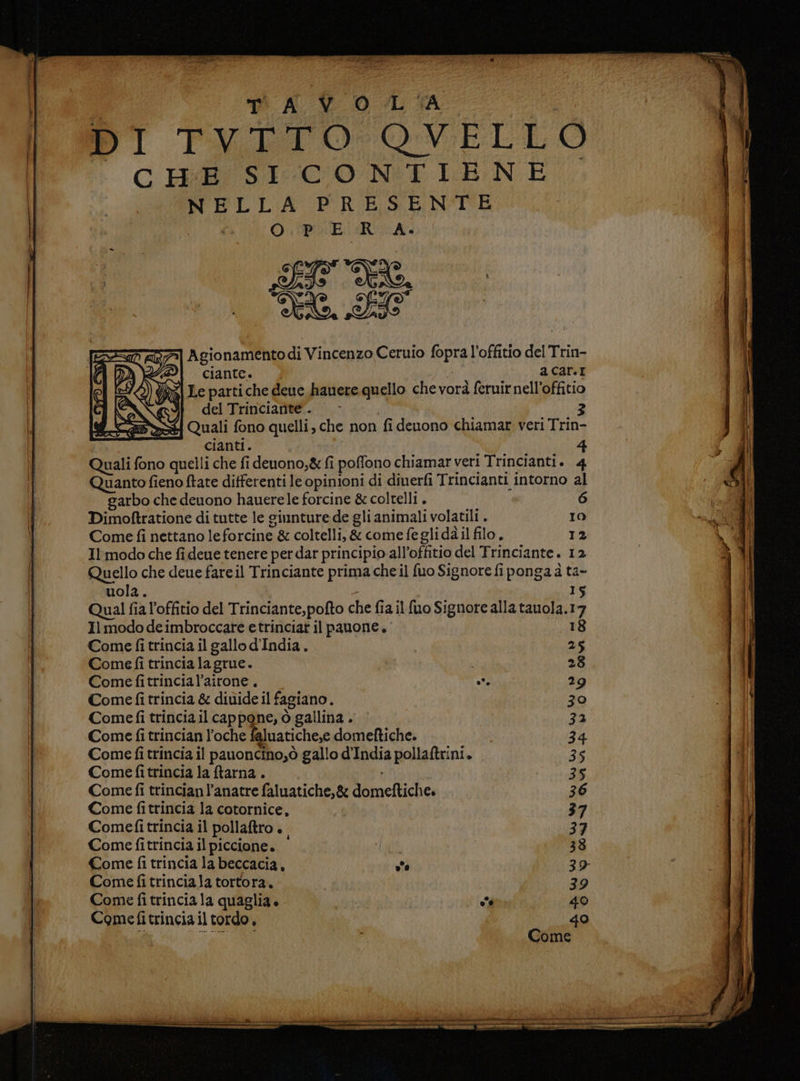 TAVOLA
DI TVTTO QVELLO
CHE SI CONTIENE
NELLA PRESENTE
OPERA.
RAgionamento di Vincenzo Ceruio ſopra l'offitio del Trin-
ciante. a car.1
Le parti che deue hauere quello che vorà ſeruir nell'offitio
del Trinciante. 3
Quali ſono quelli, che non ſi deuono chiamar veri Trin-
cianti. 4
Quali ſono quelli che ſi deuono,& ſi poſſono chiamar veri Trincianti. 4
Quanto ſieno ſtate differenti le opinioni di diuerſi Trincianti intorno al
garbo che deuono hauere le forcine & coltelli. 6
Dimoſtratione di tutte le giunture de gli animali volatili. 10
Come ſi nettano le forcine & coltelli, & come ſe gli dà il filo. 12
Il modo che ſi deue tenere per dar principio all'offitio del Trinciante. 12
Quello che deue fare il Trinciante prima che il ſuo Signore ſi ponga à ta-
uola. 15
Qual ſia l'offitio del Trinciante,poſto che ſia il ſuo Signore alla tauola.17
Il modo de imbroccare e trinciar il pauone. 18
Come ſi trincia il gallo d'India. 25
Come ſi trincia la grue. 28
Come ſi trincia l'airone. 29
Come ſi trincia & diuide il fagiano. 30
Come ſi trincia il cappone, ò gallina. 32
Come ſi trincian l'oche ſaluatiche,e domeſtiche. 34
Come ſi trincia il pauoncino,ò gallo d'India pollaſtrini. 35
Come ſi trincia la ſtarna. 35
Come ſi trincian l'anatre ſaluatiche,& domeſtiche. 36
Come ſi trincia la cotornice, 37
Come ſi trincia il pollaſtro. 37
Come ſi trincia il piccione. 38
Come ſi trincia la beccacia, 39
Come ſi trincia la tortora. 39
Come ſi trincia la quaglia. 40
Come ſi trincia il tordo, 40
Come